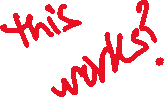 this
works?